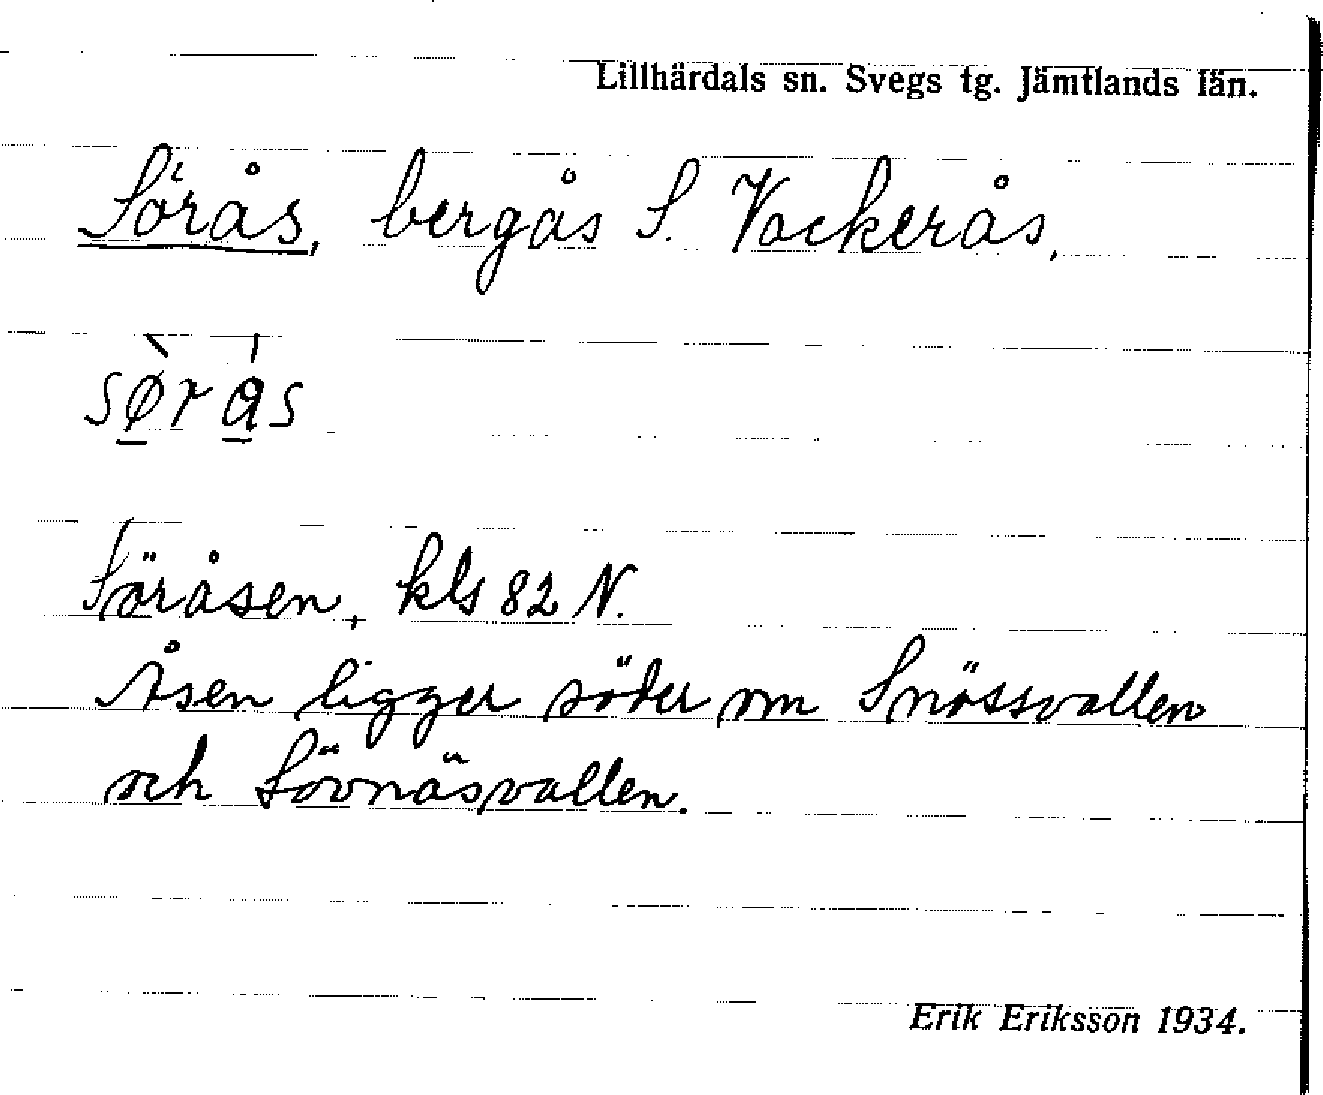 Lillhärdals sn. Svegs tg. Jämtlands län.
Sörås, bergås S. Vackerås.
Söråsen, kls 82 N.
Åsen ligger söder om Snössvallen
och Sövnäsvallen.
Erik Eriksson 1934.